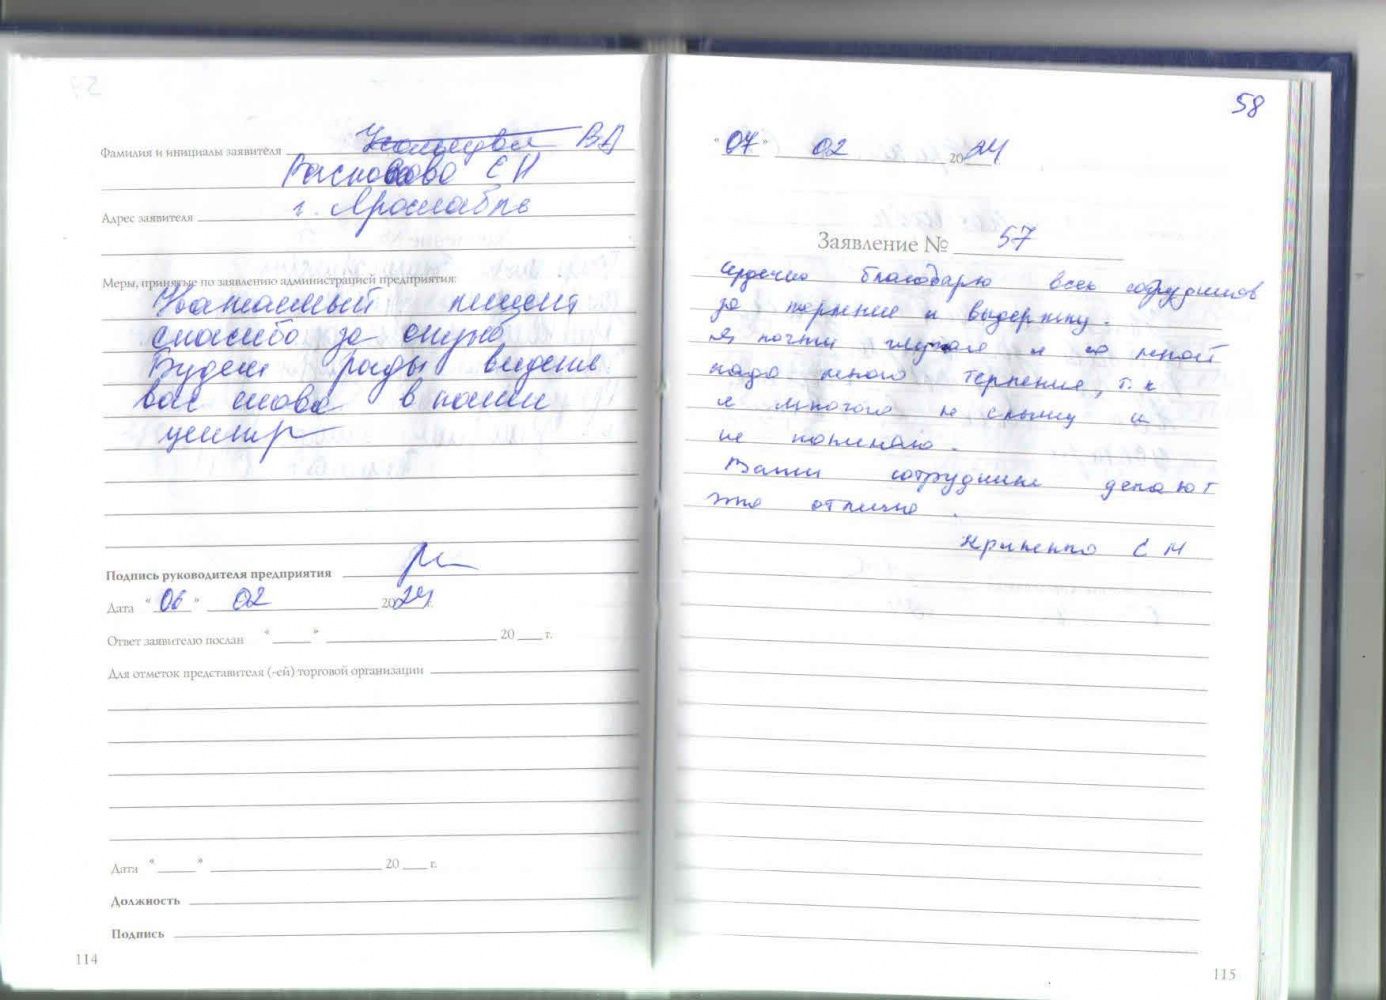 Фамилия и инициалы заявителя ВА
ЕН
Адрес заявителя г. Ярославль
Меры, принятые по заявлению администрацией предприятия:
Уважаемый пациент
спасибо за оценку
Будем рады видеть
вас снова в нашем
центр
Подпись руководителя предприятия
Дата "06" 02 2024 г.
Ответ заявителю послан "___" ___ 20 ___ г.
Для отметок представителя (-ей) торговой организации
Дата "___" ___ 20 ___ г.
Должность
Подпись
114
58
"07" 02 2024
Заявление № 57
Сердечно благодарю всех сотрудников
за терпение и выдержку.
Я почти глухая и со мной
надо много терпения, т.к
я многого не слышу и
не понимаю.
Ваши сотрудники делают
это отлично.
ЕН
115